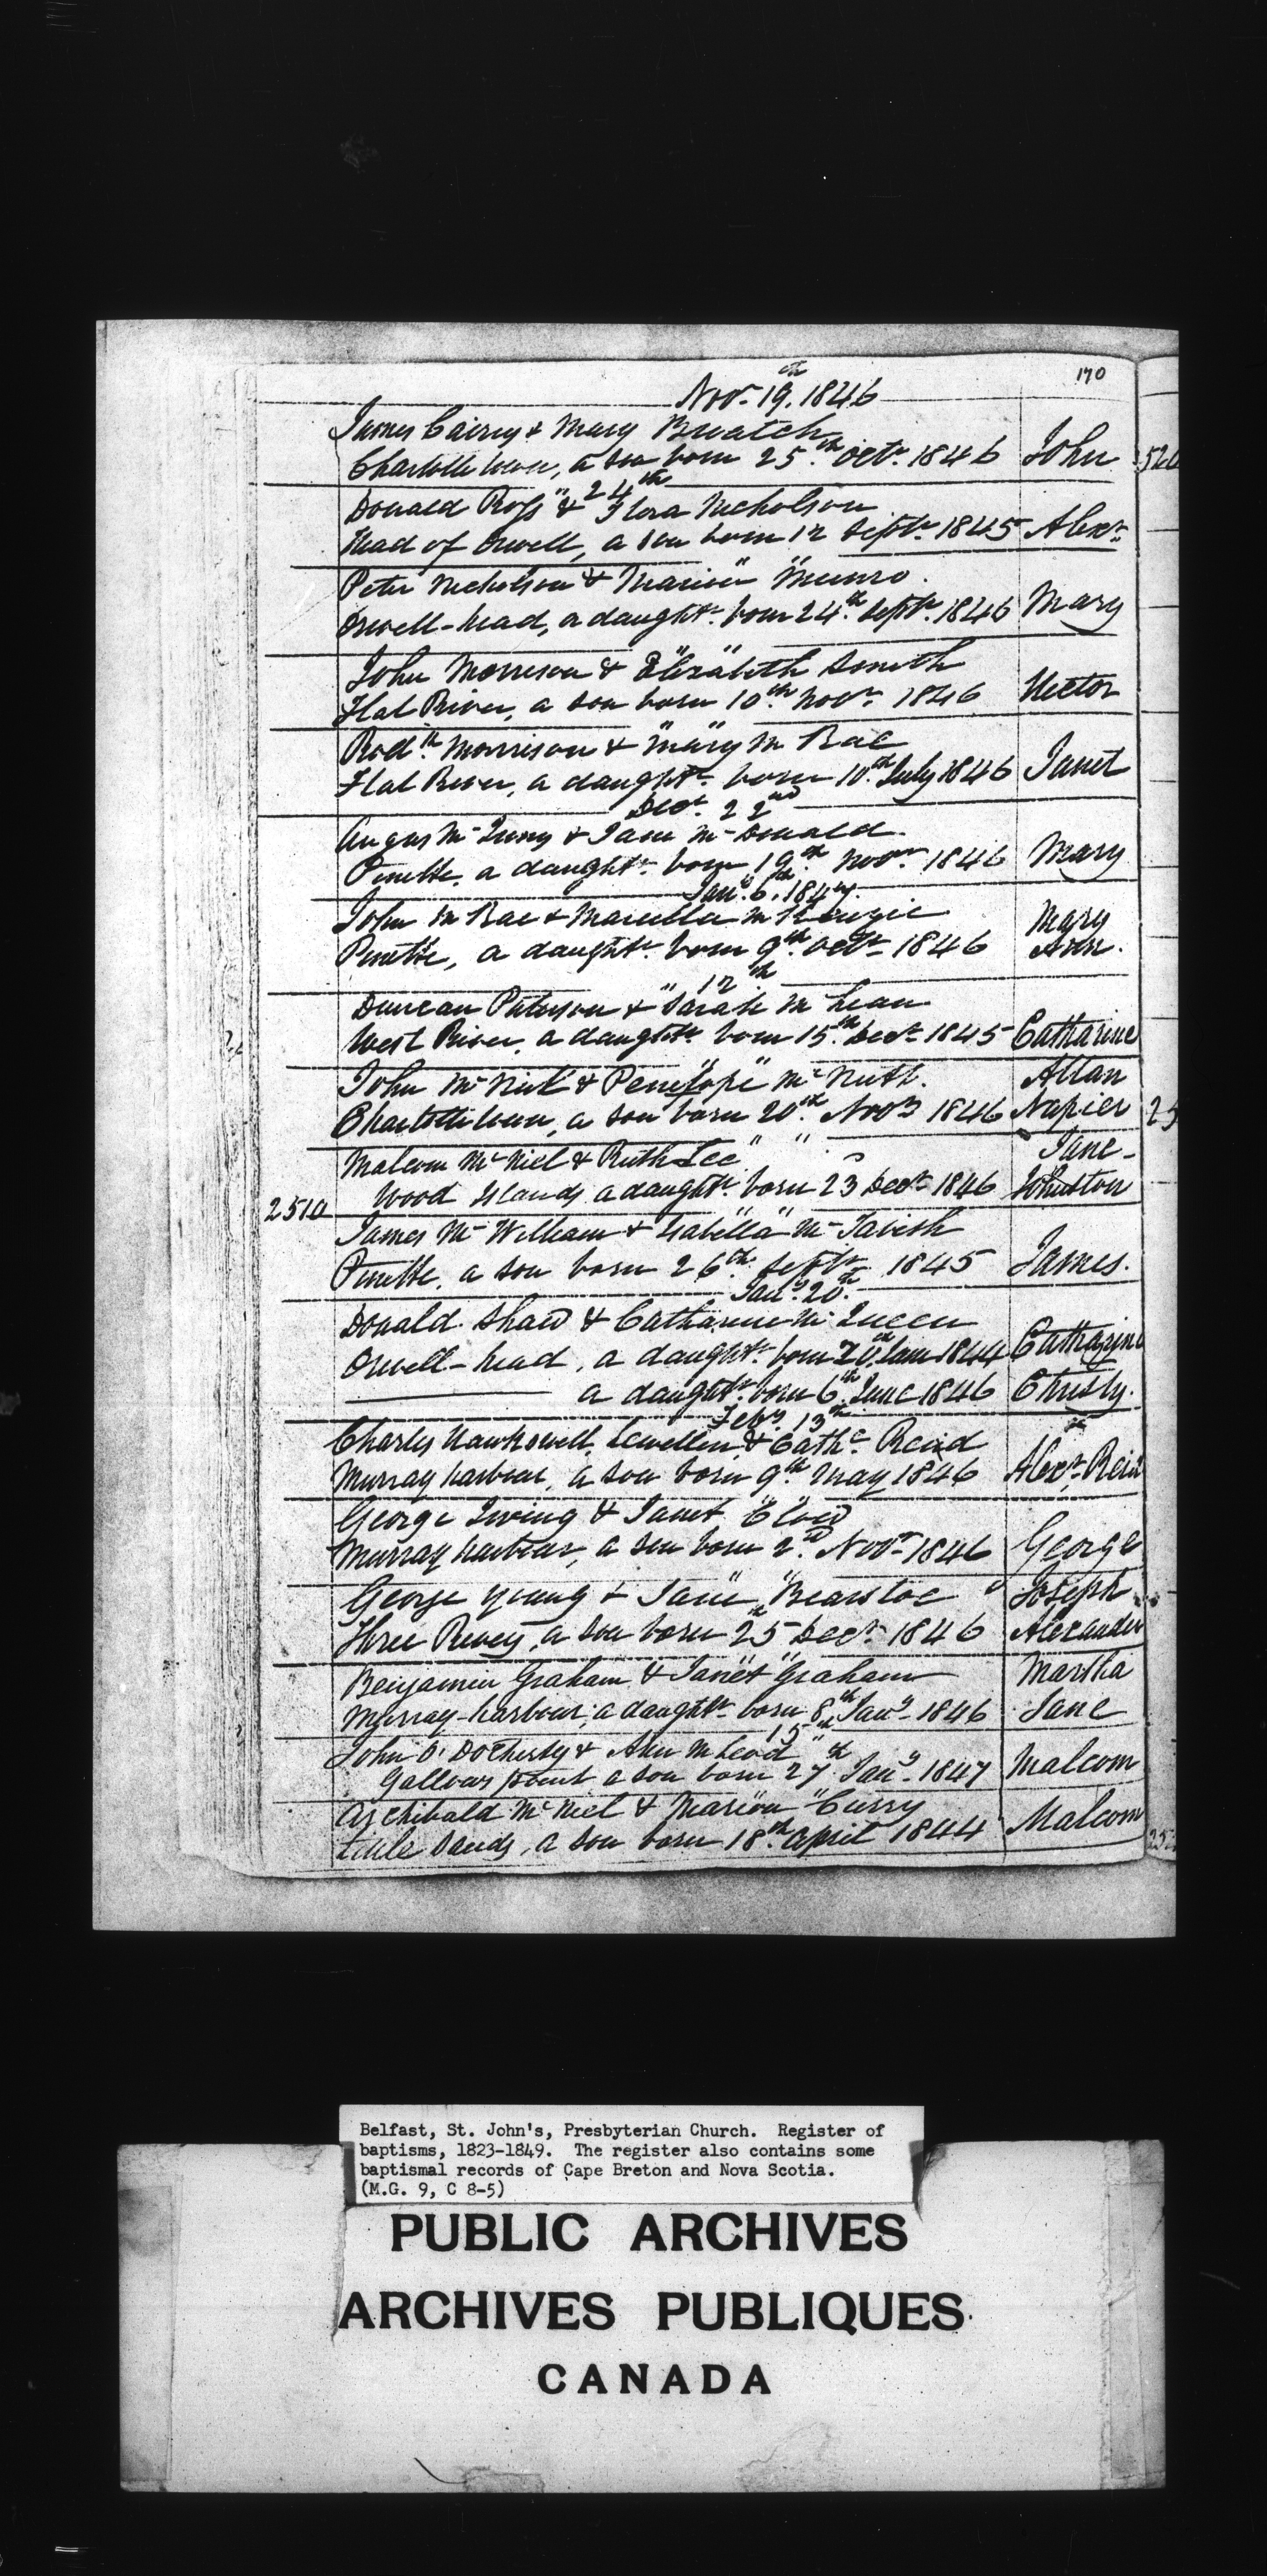 170
Novr. 19th. 1846
James Cairny & Mary Bruatch
Charlotte town, a son born 25th. Octr. 1846 John
" 24th
Donald Ross & Flora Nicholson
Head of Orwell, a son born 12 Septr. 1845 Alexr.
Peter Nicholson & Marion Munro.
Orwell-head, a daughtr. born 24th. Septr. 1846 Mary
John Morrison & Elizabeth Smith
Flat River, a son born 10th Novr. 1846 Hector
Morrison & Mary Mc Rae
Flat River, a daughtr. born 10th. July 1846 Janet
Decr. 22nd
Angus Mc & Jane Mc Donald.
Pinette, a daughtr. born 19th. Novr. 1846 Mary
Jany. 6th. 1847.
John Mc Rae & Marcella Mc Kenzie
Pinette, a daughtr. born 9th. Octr. 1846 Mary Ann.
" 12th.
Duncan Paterson & Sarah Mc Lean
West River, a daughtr. born 15th. Decr. 1845 Catharine
John Mc & Penelope Mc Nutt. Allan
Charlotte town, a son born 20th. Novr. 1846 Napier
Malcom Mc Niel & Ruth Lee Jane
Wood Islands a daughtr. born 23 Decr. 1846 Johnston
2510
James Mc William & Isabella Mc Tavish
Pinette, a son born 26th. Septr. 1845 James.
Jany. 20th.
Donald Shaw & Catharine Mc Queen
Orwell-head, a daughtr. born 20th. 1844 Catharine
a daughtr. born 6th. June 1846 Christy.
Feby. 13th
Charles Lewellin & Cathe. Reid
Murray harbour, a son born 9th. May 1846 Alexr. Reid
George Irving & Janet
Murray harbour, a son born 2nd. Novr. 1846 George
George Young & Jane Bearstoe Joseph
Three Rivers, a son born 25th Decr. 1846 Alexander
Benjamin Graham & Janet Graham Martha
Murray-harbour, a daughtr. born 8th. Jany. 1846 Jane
" 15th "
John O'Docherty & Ann McLeod
Gallows point a son born 27th Jany. 1847 Malcom
Archibald Mc Niel & Marion Curry
Little Sands, a son born 18th. April 1844 Malcom
Belfast, St. John's, Presbyterian Church. Register of
baptisms, 1823-1849. The register also contains some
baptismal records of Cape Breton and Nova Scotia.
(M.G. 9, C 8-5)
PUBLIC ARCHIVES
ARCHIVES PUBLIQUES
CANADA